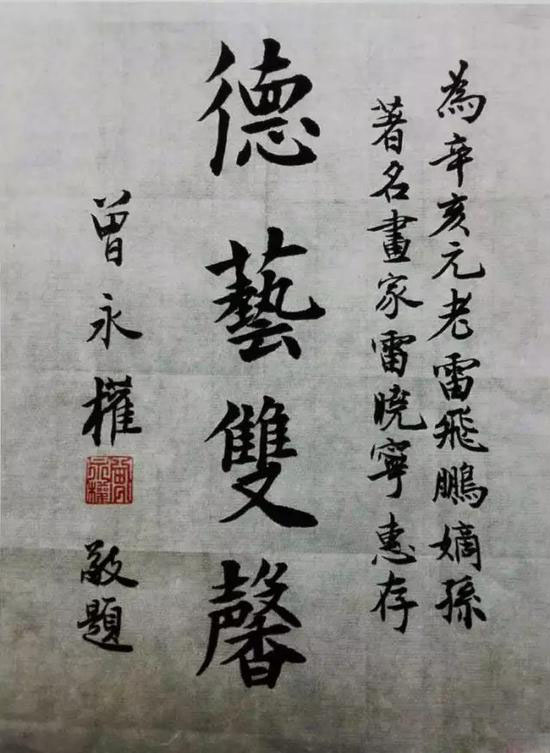 為辛亥元老雷飛鵬嫡孫
著名畫家雷晓寧惠存
德藝雙馨
曾永權
敬題